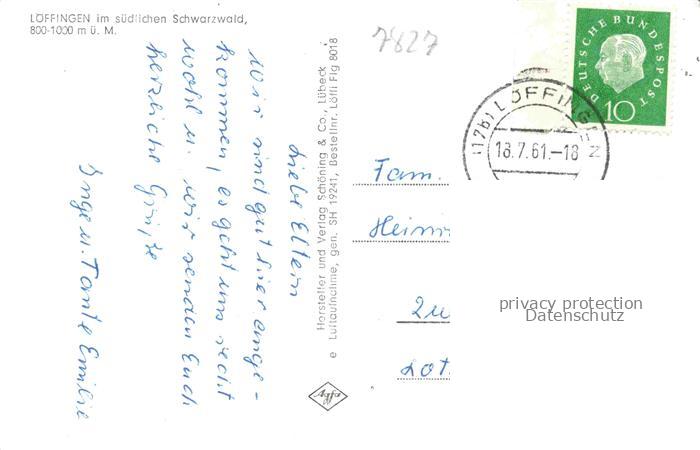 LÖFFINGEN im südlichen Schwarzwald,
800-1000 m ü. M.
7827
DEUTSCHE BUNDESPOST
10
(17b) LÖFFINGEN
18.7.61.-18
Liebe Eltern
Wir sind gut hier ange-
kommen, es geht uns recht
wohl u. wir senden Euch
herzliche Grüße
Inge u. Tante Emilie
Hersteller und Verlag Schöning & Co., Lübeck
Luftaufnahme, gen. SH 19241, Bestellnr. Löffi Flg 8018
Agfa
Fam.
Hein
Zu
Lot
privacy protection
Datenschutz